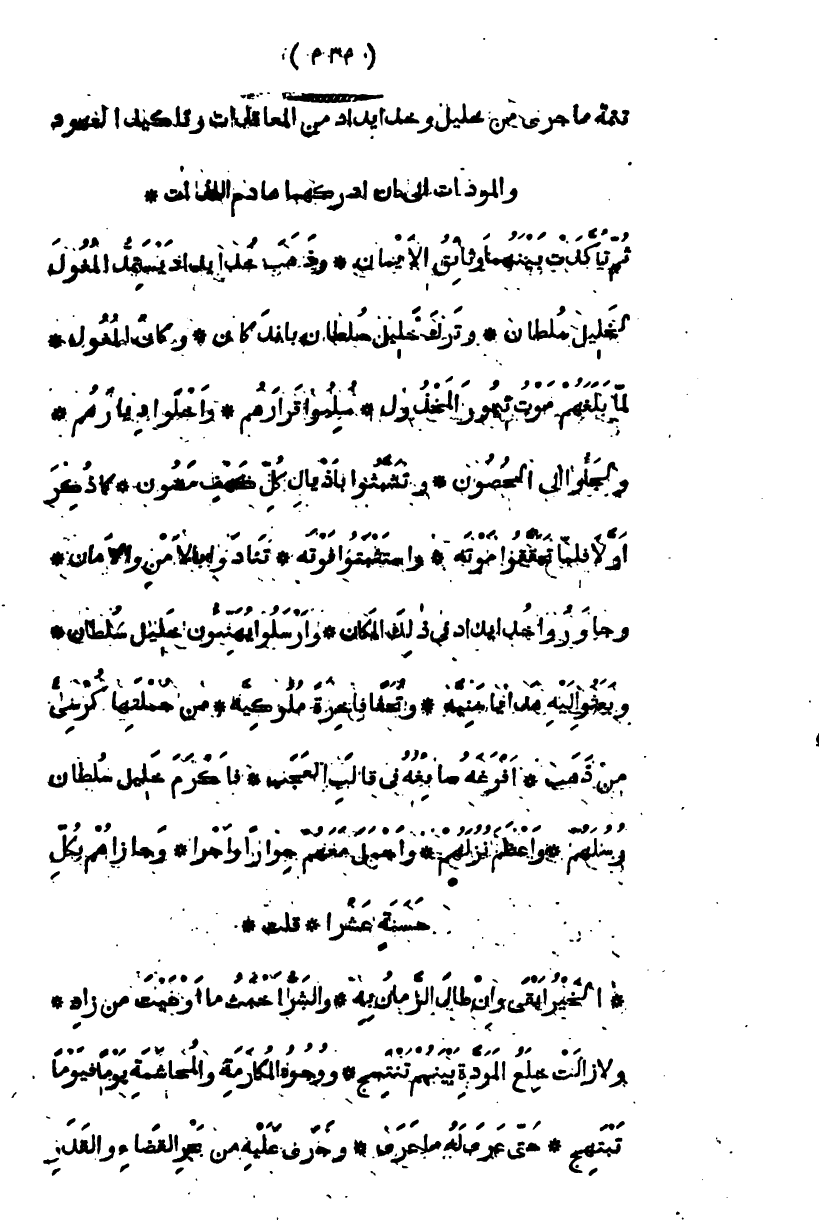 ( ٢٣٠ )
تتمة ما جرى من خليل وخدايداد من المعاقدات وتأكيد العهود
والمودات الى ان ادركهما هادم اللذات *
ثُمَّ تَأَكَّدَتْ بَيْنَهُمَا وَثَائِقُ الْاَيْمَانِ * وَذَهَبَ خُدَايداد يَسْتَمِدُّ الْمُغُولَ
لِخَلِيل سُلْطان * وَتَرَكَ خَلِيل سُلْطان بِانْدَكان * وكان المُغُول *
لَمَّا بَلَغَهُمْ مَوْتُ تيمُورَ الْمَخْذُول * سُلِبُوا قَرَارَهُم * وَاَخْلَوا دِيَارَهُم *
وَالْتَجَأُوا اِلَى الْحُصُون * وتَشَبَّثُوا بِاَذْيالِ كُلِّ كَهْفٍ مَصُون * كما ذُكِرَ
اَوَّلًا فلمَّا تَحَقَّقُوا مَوْتَه * واسْتَثْبَتُوا فَوْتَه * تَنَادَوْا بالاَمْنِ والامان *
وجاوَرُوا خُدايداد في ذلِكَ المَكَان * وَاَرْسَلُوا يُهَنِّئُون خَلِيل سُلطان *
وبَعَثُوا اِلَيْهِ هَدايا سَنِيَّه * وتُحَفًا فاخِرَةً مُلُوكِيَّه * مِن جُمْلَتِها كُرْسِىٌّ
مِنْ ذَهَب * اَفْرَغَهُ صَايِغُهُ فى قالَبِ العَجَب * فاَكْرَمَ خَلِيل سُلْطان
رُسُلَهُمْ * وَاَعْظَمَ نُزُلَهُمْ * وَاَجْمَلَ مَعَهُم جِوارًا واَحْرا * وَجازاهُمْ بِكُلِّ
حَسَنَةٍ عَشْرا * قلت *
* اَلْخَيْرُ اَبْقَى وَاِنْ طالَ الزَّمانُ بِهِ * والشَّرُّ اَخْبَثُ ما اَوْعَيْتَ من زادِ *
ولازالَتْ خِلَعُ المَوَدَّةِ بَيْنَهُم تَنْتَهِج * ووُجُوهُ المُكارَمَةِ والْمُحاشَمَةِ يَوْمًا فَيَوْمًا
تَبْتَهِج * حَتَّى عَرَضَ لَهُ ما عَرَض * وَجَرَى عَلَيْهِ من بَحْرِ القَضاءِ والقَدَرِ